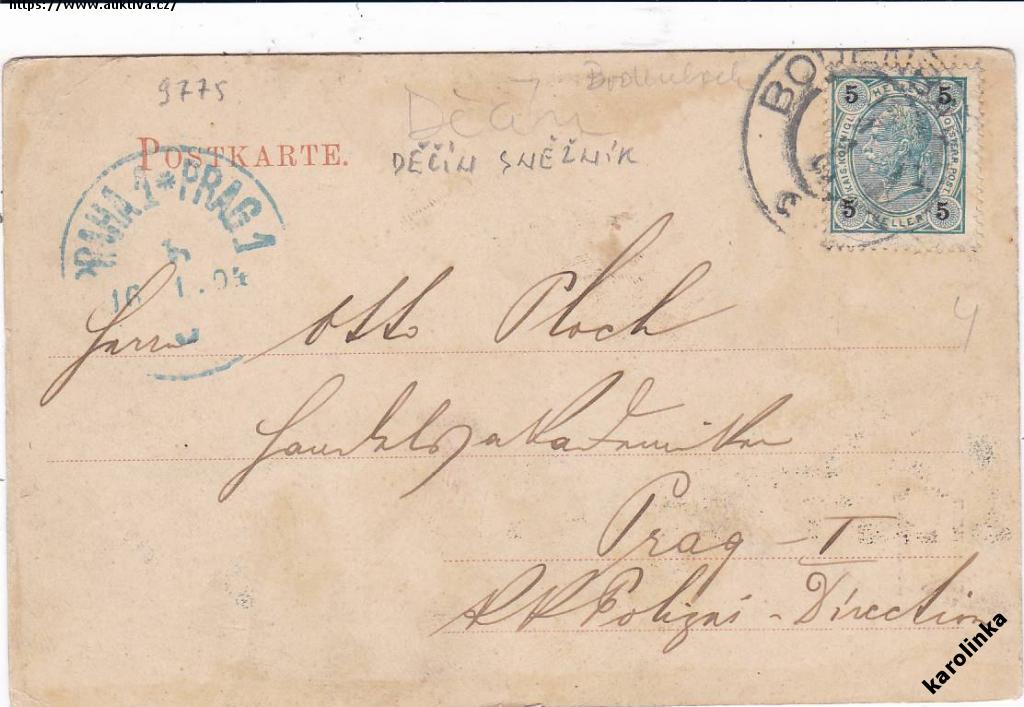 https://www.auktiva.cz/
9775
Bodenbach
Děčín
POSTKARTE.
DĚČÍN SNĚŽNÍK
PRAHA 1 * PRAG 1
16 1.04
BODEN
5 HELLER 5
KAIS. KOENIGL. OESTERR. POST.
5 HELLER 5
4
Herrn Otto Ploch
Handelsakademiker
Prag - I
K K Polizei - Direction
karolinka